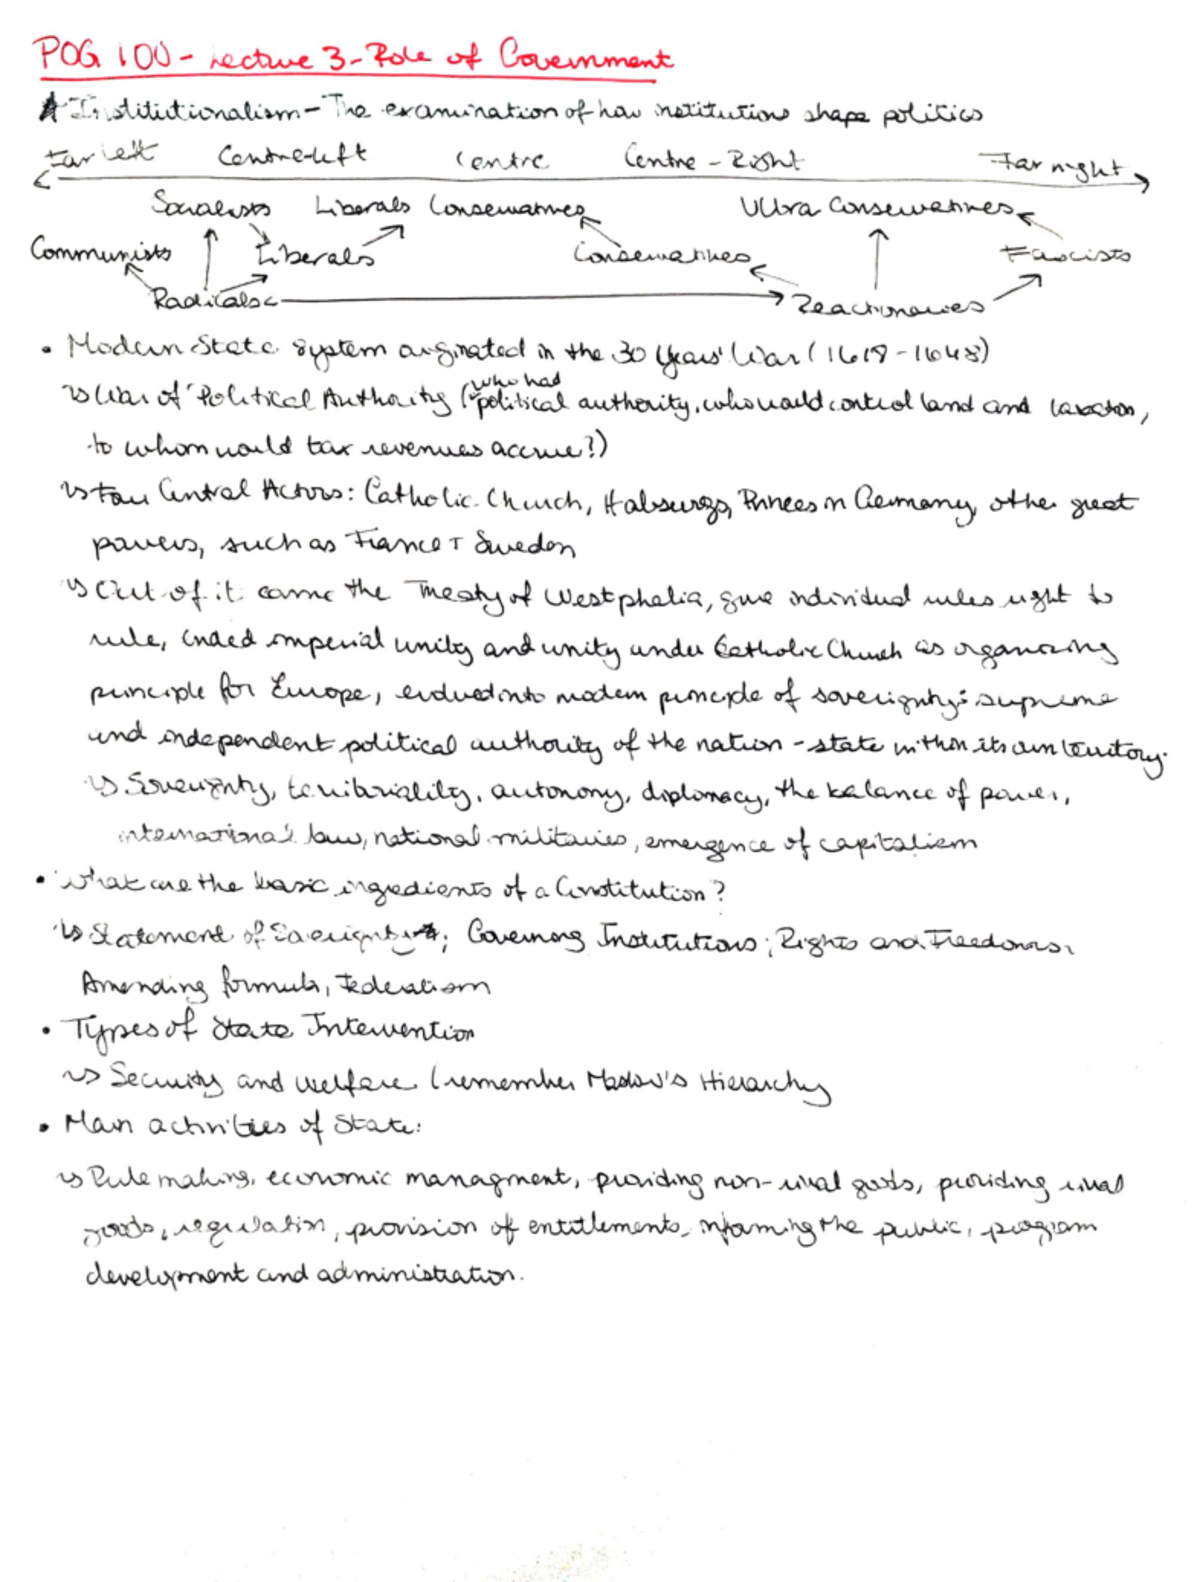 POG 100 - Lecture 3 - Role of Government
* Institutionalism - The examination of how institutions shape politics
Far left Centre-left Centre Centre-Right Far right
Socialists Liberals Conservatives Ultra Conservatives
Communists Liberals Conservatives Fascists
Radicals Reactionaries
• Modern State system originated in the 30 Years' War (1618-1648)
↳ War of Political Authority (who had political authority, who would control land and taxation,
to whom would tax revenues accrue?)
↳ Four Central Actors: Catholic Church, Habsurgs, Princes in Germany, other great
powers, such as France + Sweden
↳ Out of it came the Treaty of Westphalia, give individual rules right to
rule, ended imperial unity and unity under Catholic Church as organizing
principle for Europe, evolved into modern principle of soverignty: supreme
and independent political authority of the nation-state within its own territory.
↳ Soverignty, territoriality, autonomy, diplomacy, the balance of power,
international law, national militaries, emergence of capitalism
• What are the basic ingredients of a Constitution?
↳ Statement of Soverignty; Governing Institutions; Rights and Freedoms,
Amending formula, Federalism
• Types of State Intervention
↳ Security and welfare (remember Maslow's Hierarchy
• Main activities of State:
↳ Rule making, economic managment, providing non-rival goods, providing rival
goods, regulation, provision of entitlements, informing the public, program
development and administration.